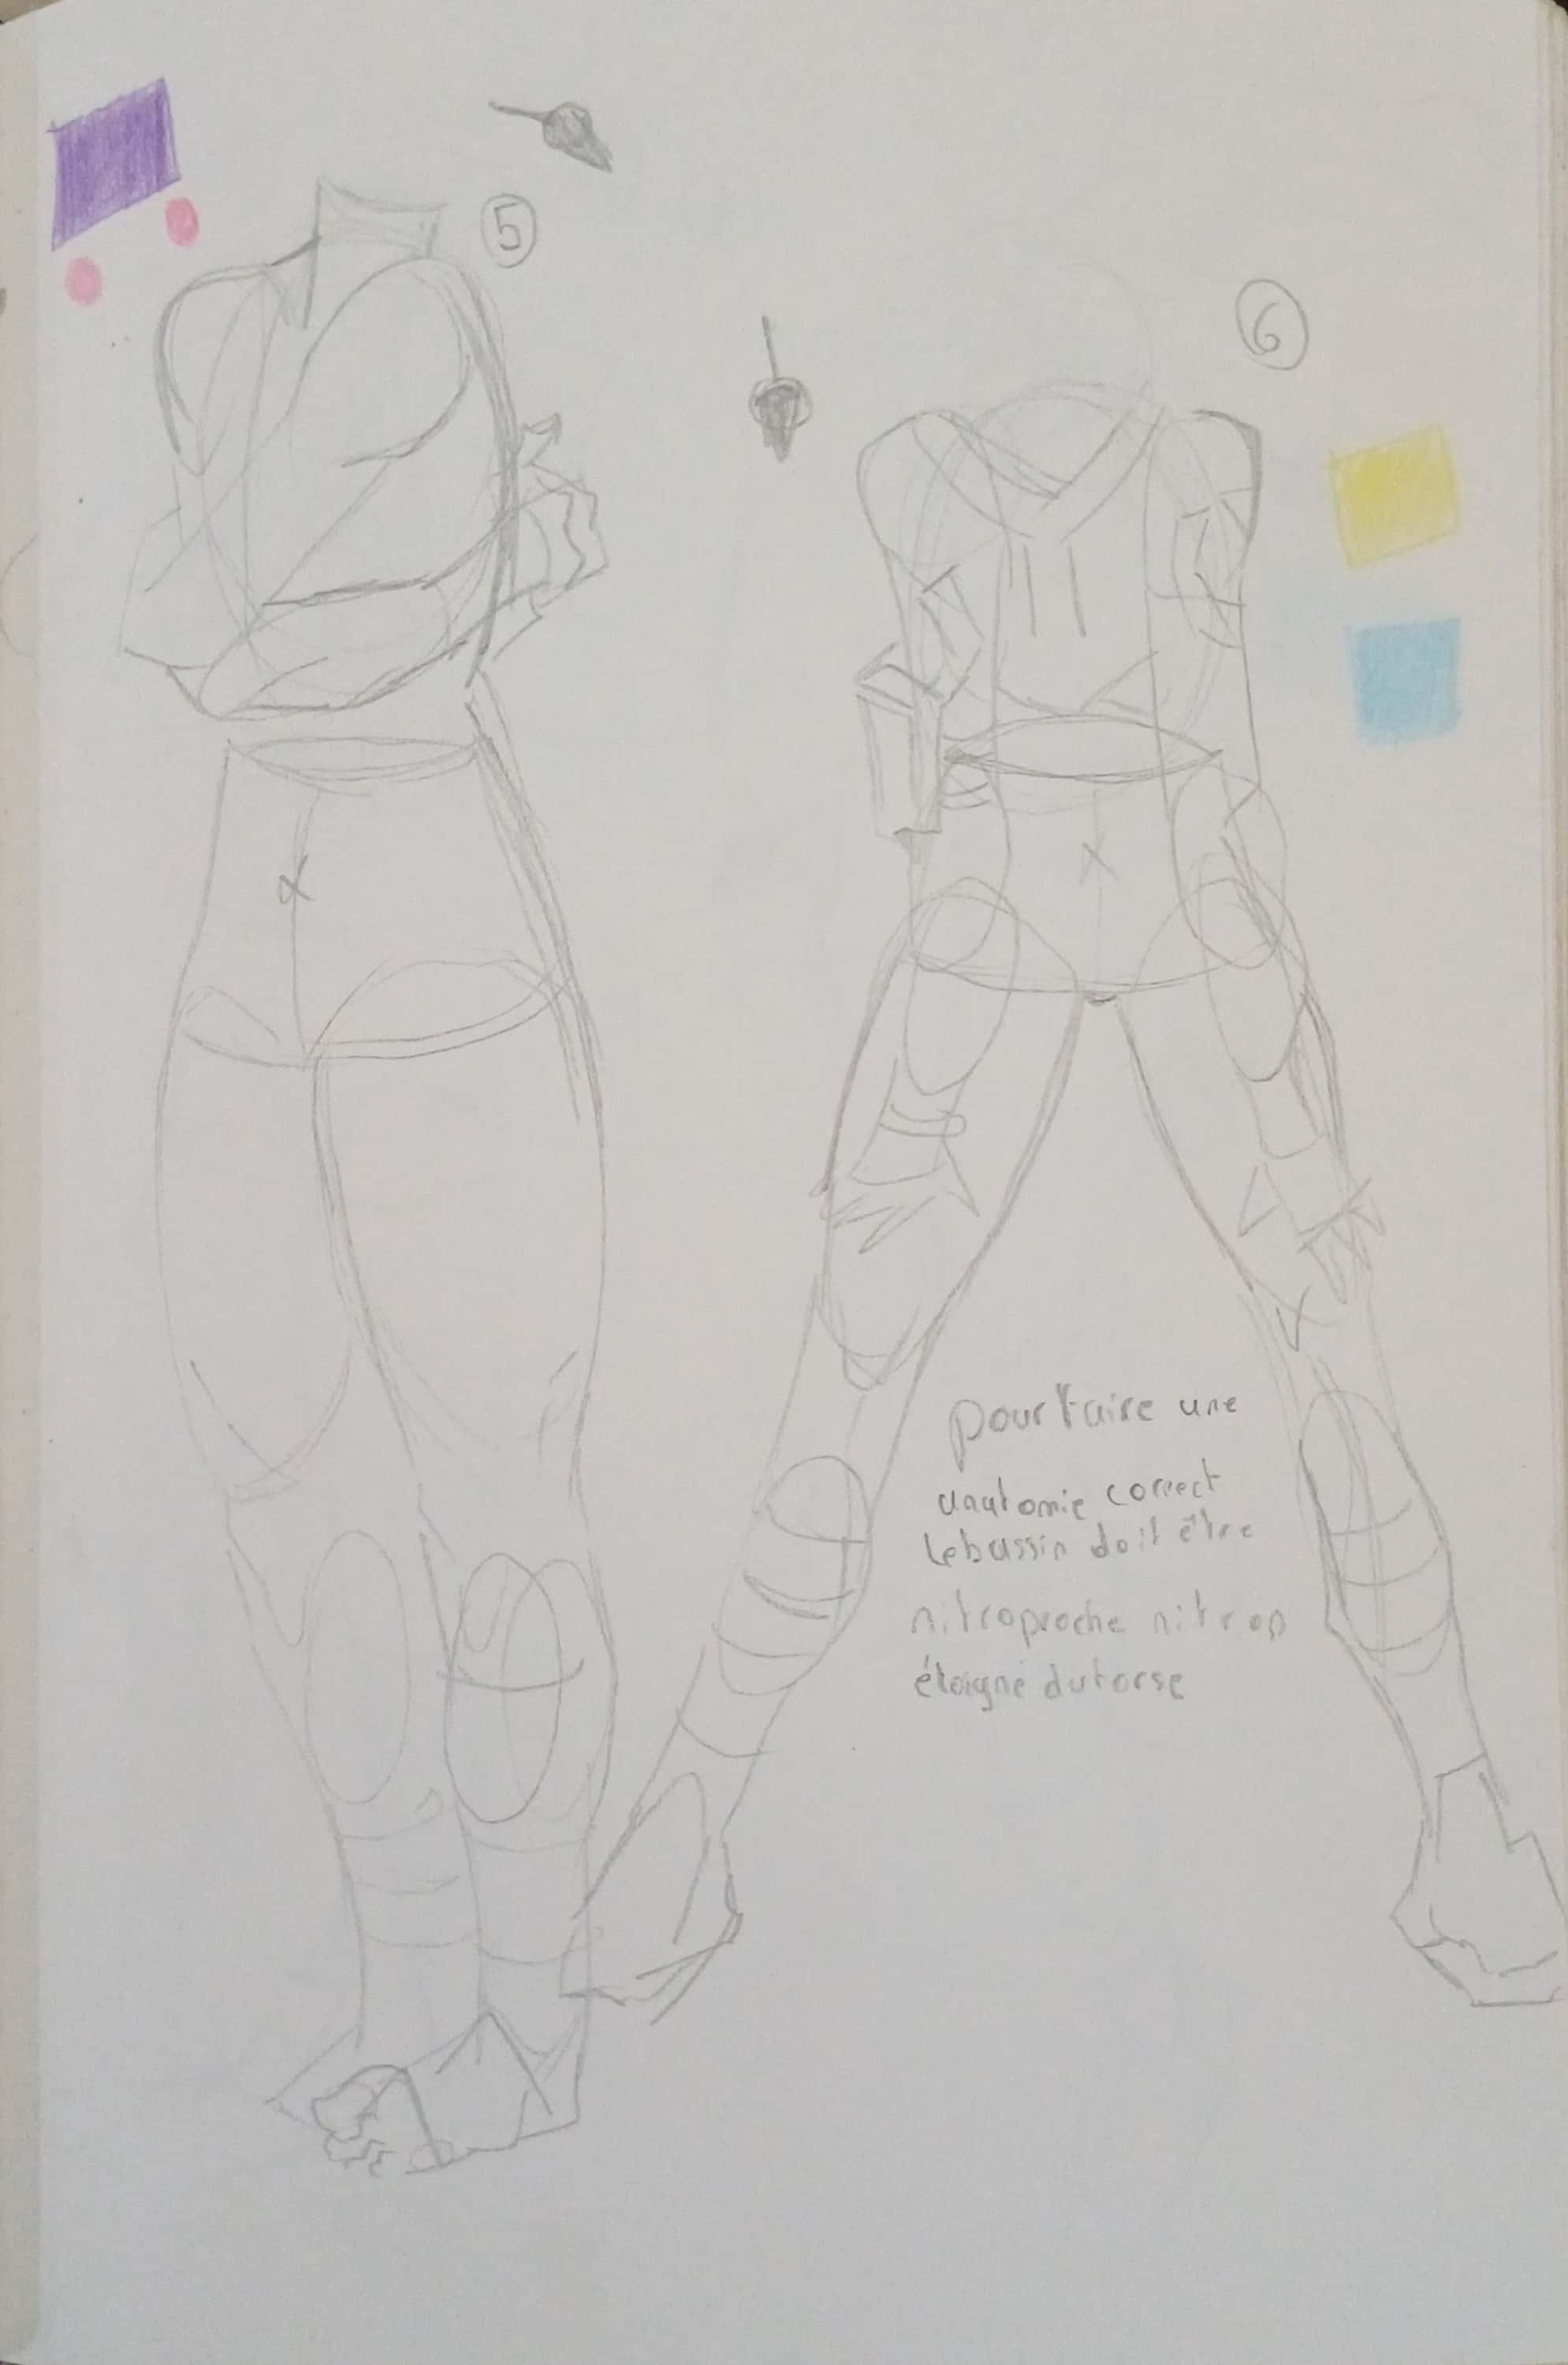 5
6
pour faire une
anatomie correct
le bassin doit être
ni trop proche ni trop
éloigné du torse